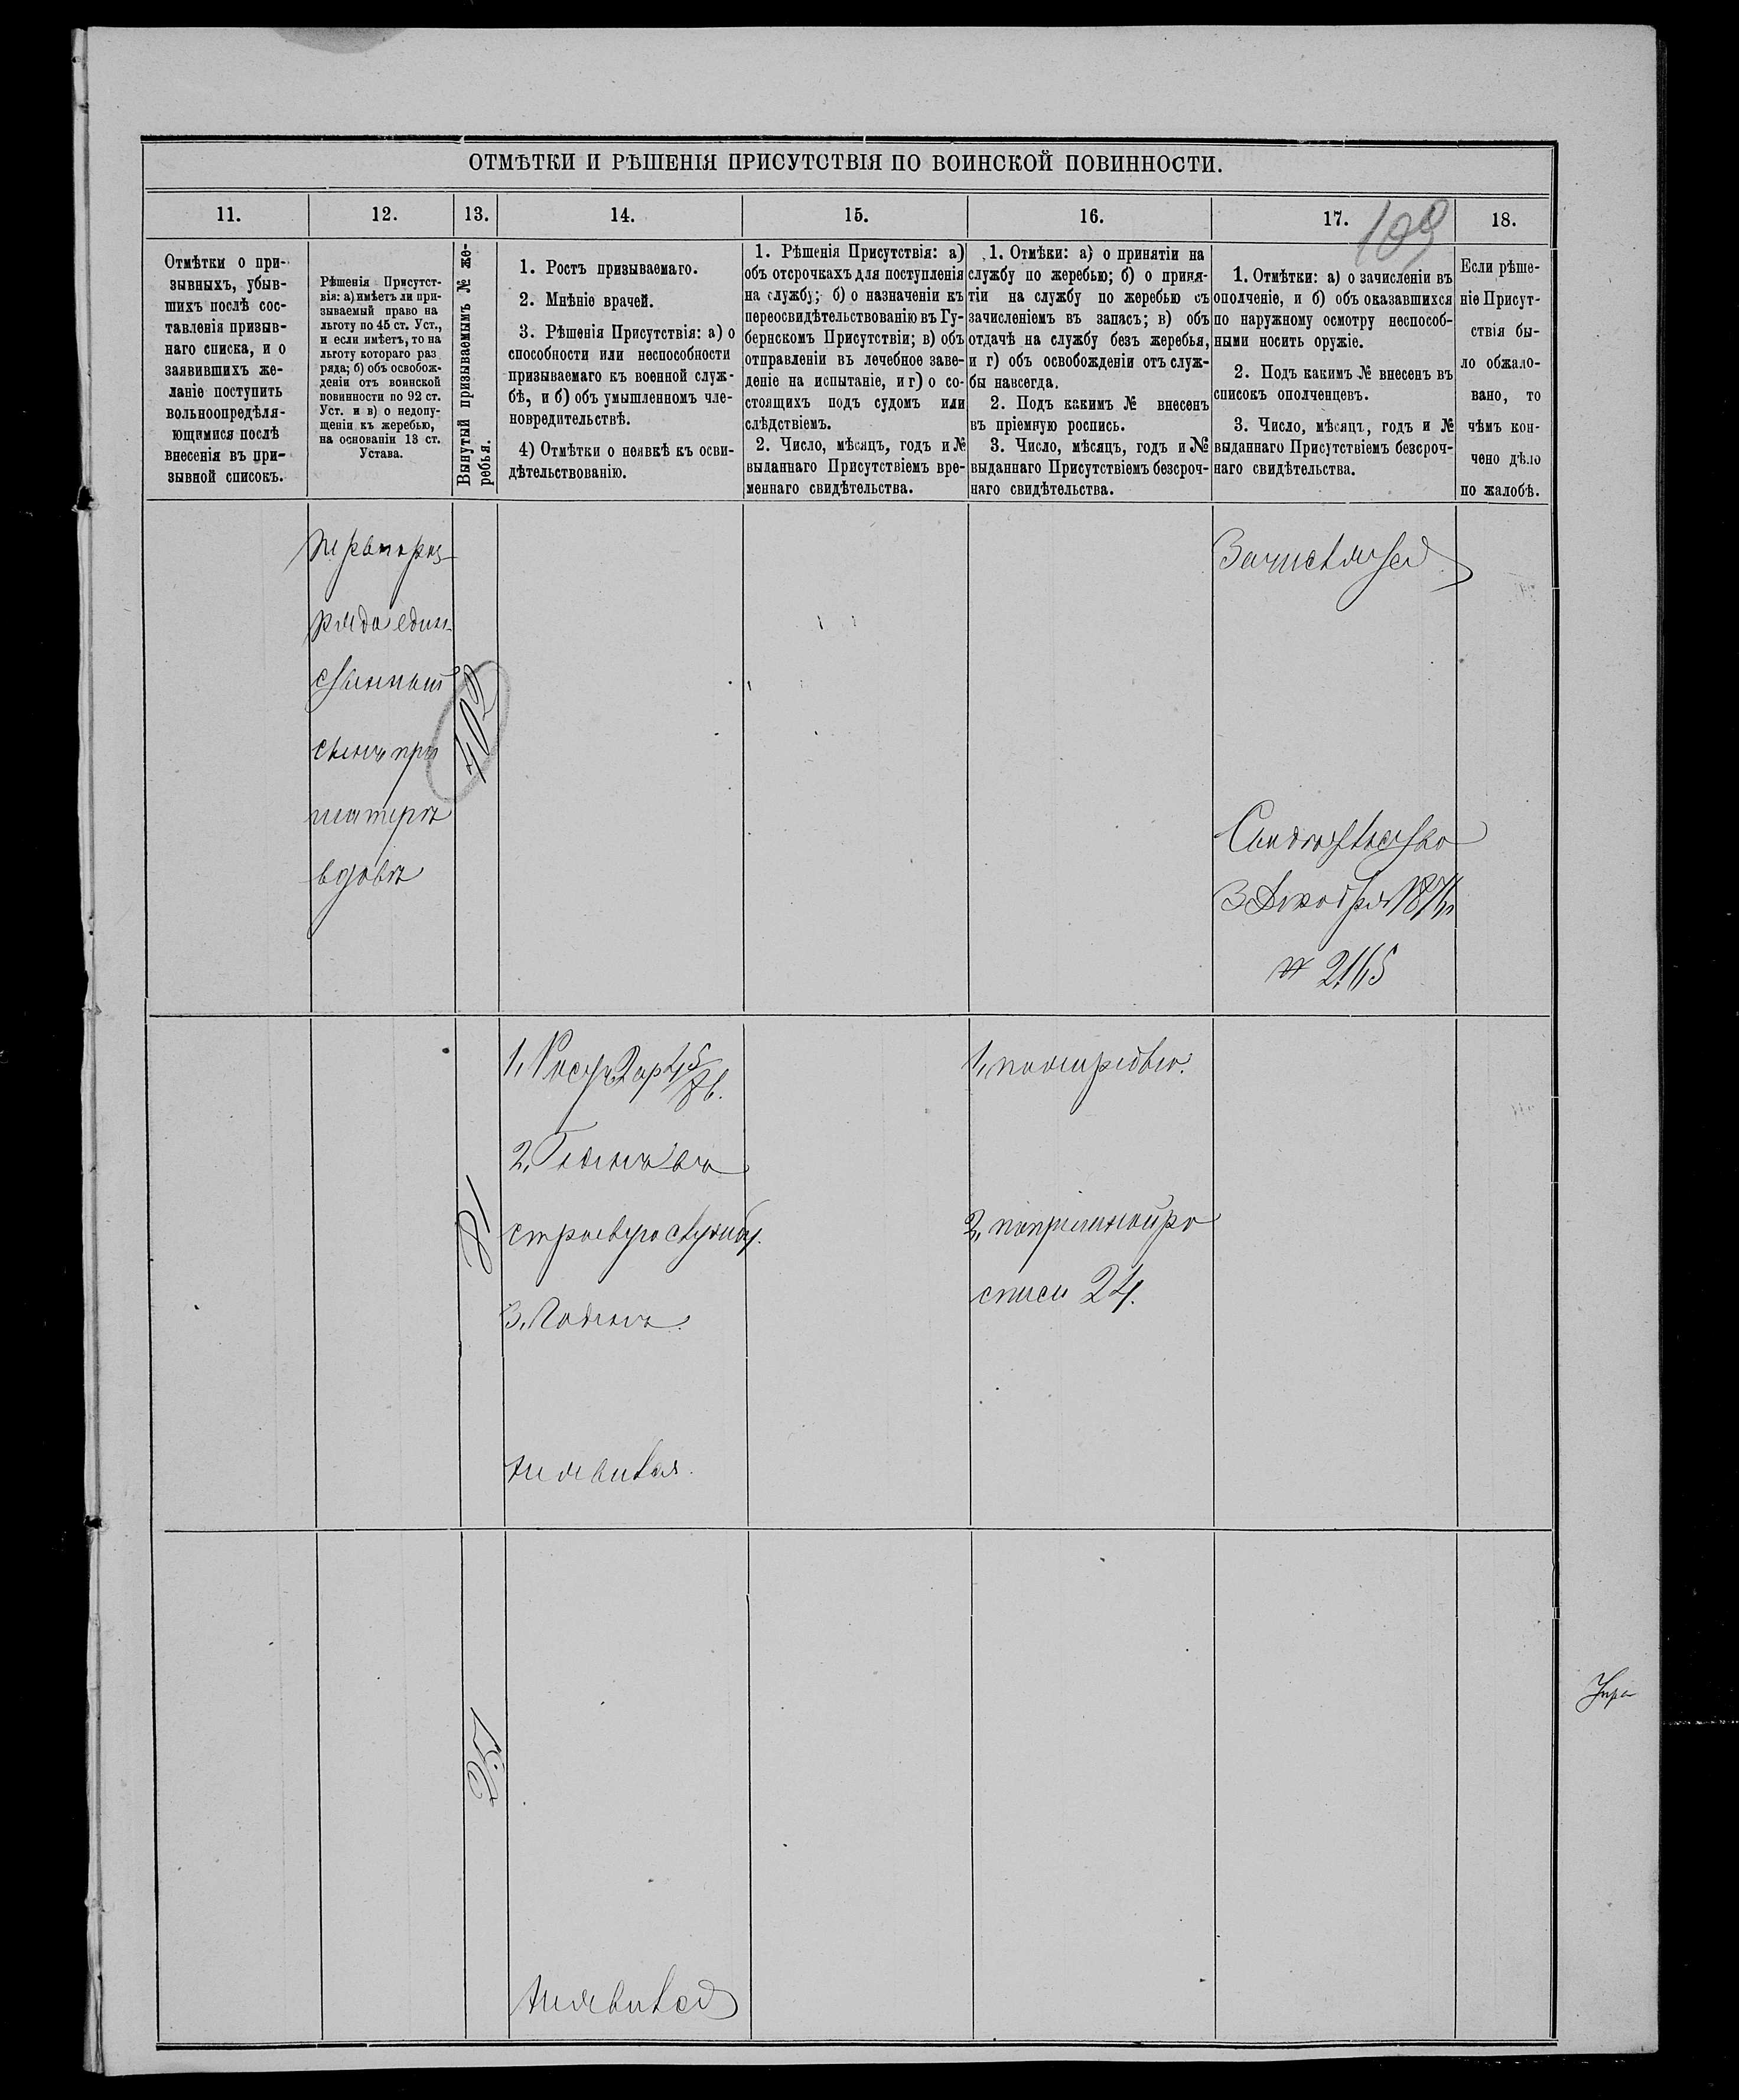 ОТМѢТКИ И РѢШЕНІЯ ПРИСУТСТВІЯ ПО ВОИНСКОЙ ПОВИННОСТИ.
109
11.
12.
13.
14.
15.
16.
17.
18.
Отмѣтки о при-
зывныхъ, убыв-
шихъ послѣ сос-
тавленія призыв-
наго списка, и о
заявившихъ же-
ланіе поступить
вольноопредѣля-
ющимися послѣ
внесенія въ при-
зывной списокъ.
Рѣшенія Присутст-
вія: а) имѣетъ ли при-
зываемый право на
льготу по 45 ст. Уст.,
и если имѣетъ, то на
льготу котораго раз
ряда; б) объ освобож-
деніи отъ воинской
повинности по 92 ст.
Уст. и в) о недопу-
щеніи къ жеребью,
на основаніи 13 ст.
Устава.
Вынутый призываемымъ № же-
ребья.
1. Ростъ призываемаго.
2. Мнѣніе врачей.
3. Рѣшенія Присутствія: а) о
способности или неспособности
призываемаго къ военной служ-
бѣ, и б) объ умышленномъ чле-
новредительствѣ.
4) Отмѣтки о неявкѣ къ осви-
дѣтельствованію.
1. Рѣшенія Присутствія: а)
объ отсрочкахъ для поступленія
на службу; б) о назначеніи къ
переосвидѣтельствованію въ Гу-
бернскомъ Присутствіи; в) объ
отправленіи въ лечебное заве-
деніе на испытаніе, и г) о со-
стоящихъ подъ судомъ или
слѣдствіемъ.
2. Число, мѣсяцъ, годъ и №
выданнаго Присутствіемъ вре-
меннаго свидѣтельства.
1. Отмѣки: а) о принятіи на
службу по жеребью; б) о приня-
тіи на службу по жеребью съ
зачисленіемъ въ запасъ; в) объ
отдачѣ на службу безъ жеребья,
и г) объ освобожденіи отъ служ-
бы навсегда.
2. Подъ какимъ № внесенъ
въ пріемную роспись.
3. Число, мѣсяцъ, годъ и №
выданнаго Присутствіемъ безсроч-
наго свидѣтельства.
1. Отмѣтки: а) о зачисленіи въ
ополченіе, и б) объ оказавшихся
по наружному осмотру неспособ-
ными носить оружіе.
2. Подъ какимъ № внесенъ въ
списокъ ополченцевъ.
3. Число, мѣсяцъ, годъ и №
выданнаго Присутствіемъ безсроч-
наго свидѣтельства.
Если рѣше-
ніе Присут-
ствія бы-
ло обжало-
вано, то
чѣмъ кон-
чено дѣло
по жалобѣ.
ряда един
ственный
сынъ при
матери
вдовѣ
Свидѣтельство
3 Декабря
№ 2165
1, Ростъ 2 ар 4 5/8 в.
2, Годенъ въ
строевую службу.
3, Годенъ.
Неявился.
81
1, по жеребью.
2, по пріемной ро
списи 24.
251
Неявился